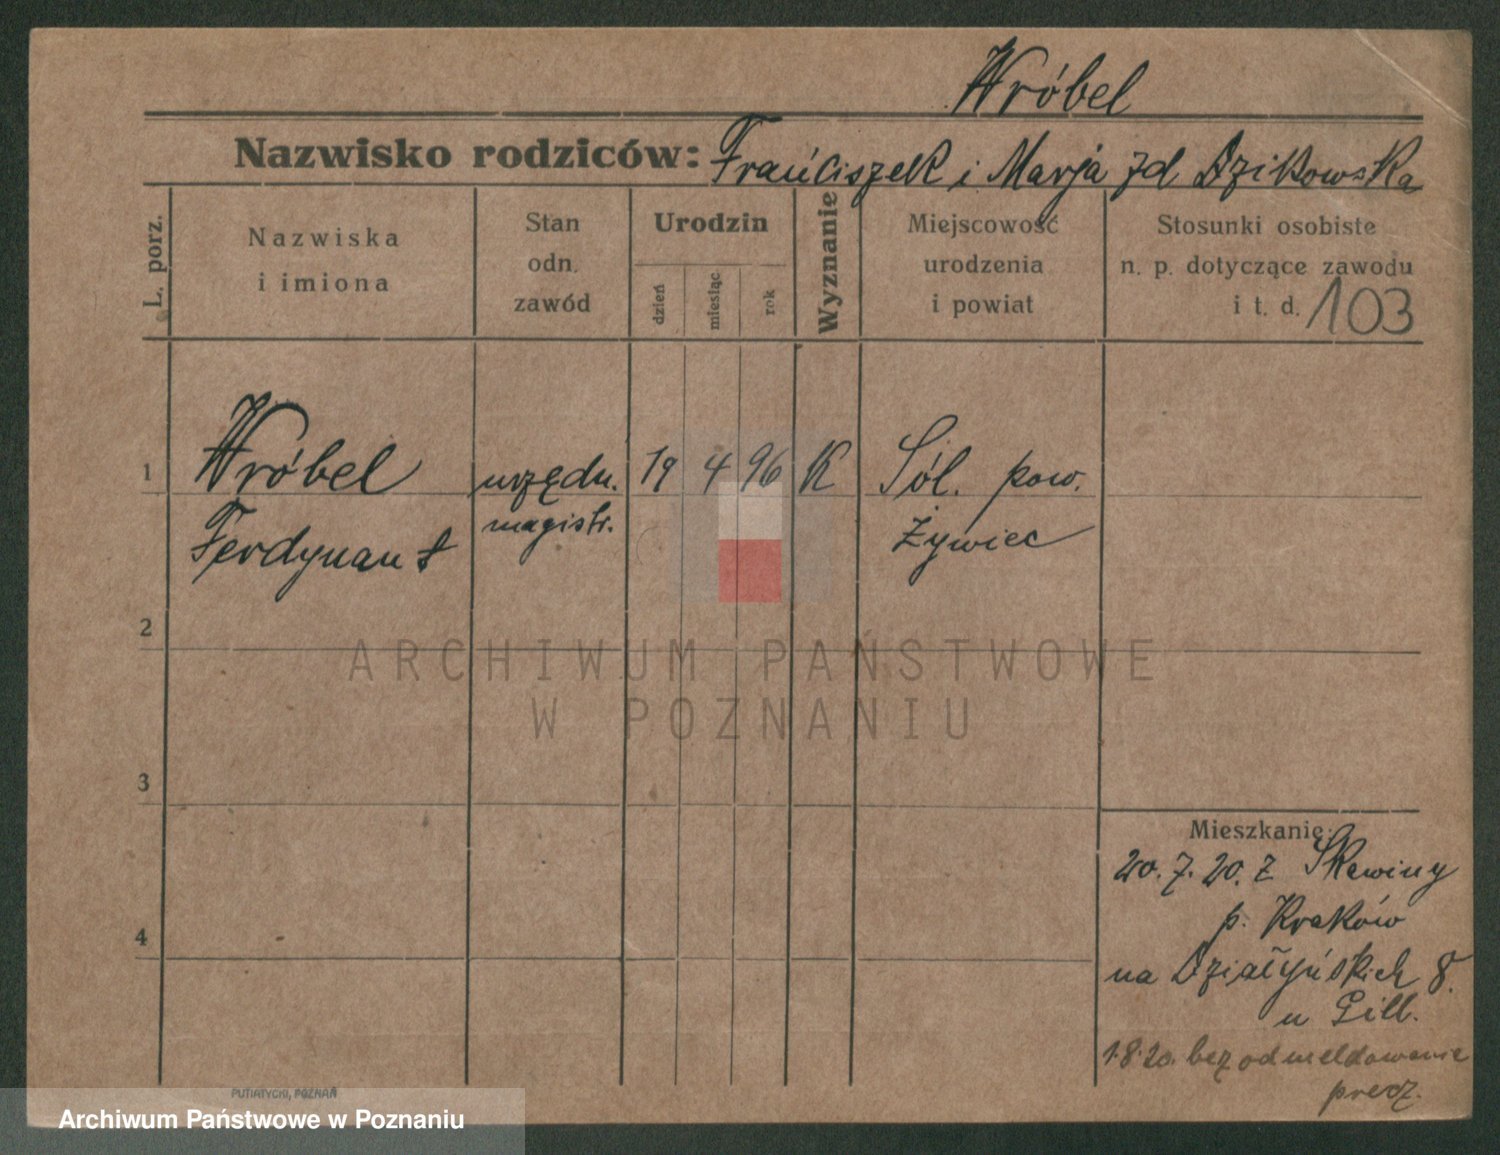 Wróbel
Nazwisko rodziców: Franciszek i Marja zd Dzikowska
L. porz.
Nazwiska
i imiona
Stan
odn.
zawód
Urodzin
dzień
miesiąc
rok
Wyznanie
Miejscowość
urodzenia
i powiat
Stosunki osobiste
n. p. dotyczące zawodu
i t. d. 103
1 Wróbel urzędn. 19 4 96 K Sól. pow.
Ferdynant magistr. Żywiec
2
ARCHIWUM PAŃSTWOWE
W POZNANIU
3
Mieszkanie:
20. 7. 20. z Skawiny
p. Kraków
4
na Działyńskich 8.
u Gill.
1.8.20. bez odmeldowanie
precz.
PUTIATYCKI, POZNAŃ
Archiwum Państwowe w Poznaniu